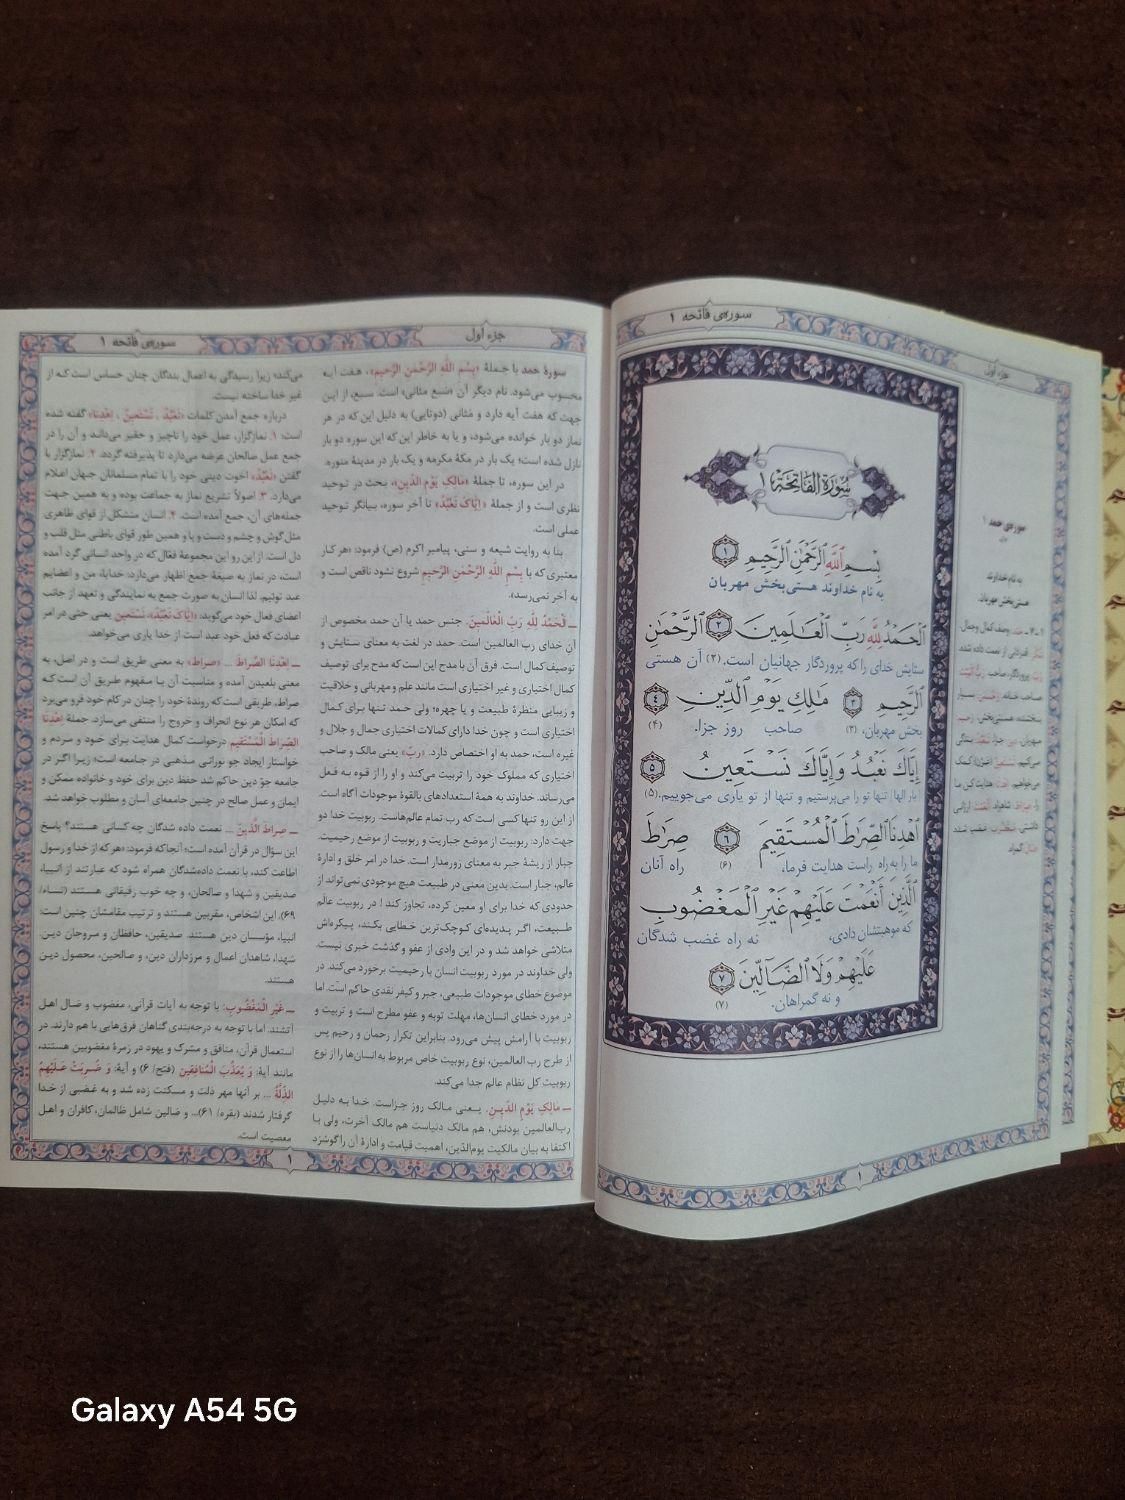 سوره‌ی فاتحه ۱
جزء اول
سُورَةُ الفَاتِحَة ۱
بِسْمِ ٱللَّهِ ٱلرَّحْمَٰنِ ٱلرَّحِيمِ ١
به نام خداوند هستی‌بخش مهربان
ٱلْحَمْدُ لِلَّهِ رَبِّ ٱلْعَٰلَمِينَ ٢ ٱلرَّحْمَٰنِ
ستایش خدای را که پروردگار جهانیان است. (۲) آن هستی
ٱلرَّحِيمِ ٣ مَٰلِكِ يَوْمِ ٱلدِّينِ ٤
بخش مهربان، (۳) صاحب روز جزا. (۴)
إِيَّاكَ نَعْبُدُ وَإِيَّاكَ نَسْتَعِينُ ٥
بار الها! تنها تو را می‌پرستیم و تنها از تو یاری می‌جوییم. (۵)
ٱهْدِنَا ٱلصِّرَٰطَ ٱلْمُسْتَقِيمَ ٦ صِرَٰطَ
ما را به راه راست هدایت فرما، (۶) راه آنان
ٱلَّذِينَ أَنْعَمْتَ عَلَيْهِمْ غَيْرِ ٱلْمَغْضُوبِ
که موهبتشان دادی، نه راه غضب شدگان
عَلَيْهِمْ وَلَا ٱلضَّآلِّينَ ٧
و نه گمراهان. (۷)
سوره‌ی حمد ۱
به نام خداوند
هستی‌بخش مهربان
۱
جزء اول
سوره‌ی فاتحه ۱
سورهٔ حمد با جملهٔ «بِسْمِ اللَّهِ الرَّحْمَنِ الرَّحِیمِ»، هفت آیه
محسوب می‌شود. نام دیگر آن «سَبع مثانی» است. سبع، از این
جهت که هفت آیه دارد و مَثانی (دوتایی) به دلیل این که در هر
نماز دو بار خوانده می‌شود، و یا به خاطر این که این سوره دو بار
نازل شده است؛ یک بار در مکهٔ مکرمه و یک بار در مدینهٔ منوره.
در این سوره، تا جملهٔ «مَالِكِ یَوْمِ الدِّینِ» بحث در توحید
نظری است و از جملهٔ «إِیَّاكَ نَعْبُدُ» تا آخر سوره، بیانگر توحید
عملی است.
بنا به روایت شیعه و سنی، پیامبر اکرم (ص) فرمود: «هر کار
معتبری که با بِسْمِ اللَّهِ الرَّحْمَنِ الرَّحِیمِ شروع نشود ناقص است و
به آخر نمی‌رسد».
ــ اَلْحَمْدُ لِلَّهِ رَبِّ الْعَالَمِینَ. جنس حمد یا آن حمد مخصوص از
آن خدای رب العالمین است. حمد در لغت به معنای ستایش و
توصیف کمال است. فرق آن با مدح این است که مدح برای توصیف
کمال اختیاری و غیر اختیاری است مانند علم و مهربانی و خلاقیت
و زیبایی منظرهٔ طبیعت و یا چهره؛ ولی حمد تنها برای کمال
اختیاری است و چون خدا دارای کمالات اختیاری جمال و جلال و
غیره است، حمد به او اختصاص دارد. «ربّ» یعنی مالک و صاحب
اختیاری که مملوک خود را تربیت می‌کند و او را از قوه به فعل
می‌رساند. خداوند به همهٔ استعدادهای بالقوهٔ موجودات آگاه است.
از این رو تنها کسی است که رب تمام عالم‌هاست. ربوبیت خدا دو
جهت دارد: ربوبیت از موضع جباریت و ربوبیت از موضع رحیمیت.
جبار از ریشهٔ جبر به معنای زورمدار است. خدا در امر خلق و ادارهٔ
عالم، جبار است. بدین معنی در طبیعت هیچ موجودی نمی‌تواند از
حدودی که خدا برای او معین کرده، تجاوز کند! در ربوبیت عالم
طبیعت، اگر پدیده‌ای کوچک‌ترین خطایی بکند، پیکره‌اش
متلاشی خواهد شد و در این وادی از عفو و گذشت خبری نیست.
ولی خداوند در مورد ربوبیت انسان با رحیمیت برخورد می‌کند. در
موضوع خطای موجودات طبیعی، جبر و کیفر نقدی حاکم است. اما
در مورد خطای انسان‌ها، مهلت توبه و عفو مطرح است و تربیت و
ربوبیت با آرامش پیش می‌رود. بنابراین تکرار رحمان و رحیم پس
از طرح رب العالمین، نوع ربوبیت خاص مربوط به انسان‌ها را از نوع
ربوبیت کل نظام عالم جدا می‌کند.
ــ مَالِكِ یَوْمِ الدِّینِ. یعنی مالک روز جزاست. خدا به دلیل
رب‌العالمین بودنش، هم مالک دنیاست هم مالک آخرت، ولی با
اکتفا به بیان مالکیت یوم‌الدّین، اهمیت قیامت و ادارهٔ آن را گوشزد
می‌کند؛ زیرا رسیدگی به اعمال بندگان چنان حساس است که از
غیر خدا ساخته نیست.
درباره جمع آمدن کلمات «نَعْبُدُ ، نَسْتَعِینُ ، اِهْدِنَا» گفته شده
است: ۱. نمازگزار، عمل خود را ناچیز و حقیر می‌داند و آن را در
جمع عمل صالحان عرضه می‌دارد تا پذیرفته گردد. ۲. نمازگزار با
گفتن «نَعْبُدُ» اخوت دینی خود را با تمام مسلمانان جهان اعلام
می‌دارد. ۳. اصولاً تشریع نماز به جماعت بوده و به همین جهت
جمله‌های آن، جمع آمده است. ۴. انسان متشکل از قوای ظاهری
مثل گوش و چشم و دست و پا و همین طور قوای باطنی مثل قلب و
دل است. از این رو این مجموعهٔ فعّال که در واحد انسانی گرد آمده
است، در نماز به صیغهٔ جمع اظهار می‌دارد: خدایا، من و اعضایم
عبد توئیم. لذا انسان به صورت جمع به نمایندگی و تعهد از جانب
اعضای فعال خود می‌گوید: «إِیَّاكَ نَعْبُدُ». نَسْتَعِین یعنی حتی در امر
عبادت که فعل خود عبد است از خدا یاری می‌خواهد.
ــ اِهْدِنَا الصِّرَاطَ ... «صراط» به معنی طریق است و در اصل، به
معنی بلعیدن آمده و مناسبت آن با مفهوم طریق آن است که
صراط، طریقی است که روندهٔ خود را چنان در کام خود فرو می‌برد
که امکان هر نوع انحراف و خروج را منتفی می‌سازد. جملهٔ اِهْدِنَا
الصِّرَاطَ الْمُسْتَقِیمَ درخواست کمال هدایت برای خود و مردم و
خواستار ایجاد جو نورانی مذهبی در جامعه است؛ زیرا اگر در
جامعه جوّ دین حاکم شد حفظ دین برای خود و خانواده ممکن و
ایمان و عمل صالح در چنین جامعه‌ای آسان و مطلوب خواهد شد.
ــ صِرَاطَ الَّذِینَ ... نعمت داده شدگان چه کسانی هستند؟ پاسخ
این سؤال در قرآن آمده است؛ آنجا که فرمود: «هر که از خدا و رسول
اطاعت کند، با نعمت داده‌شدگان همراه شود که عبارتند از انبیاء،
صدیقین و شهدا و صالحان، و چه خوب رفیقانی هستند (نساء/
۶۹). این اشخاص، مقربین هستند و ترتیب مقامشان چنین است:
انبیا، مؤسسان دین هستند. صدیقین، حافظان و مروجان دین.
شهدا، شاهدان اعمال و مرزداران دین، و صالحین، محصول دین
هستند.
ــ غَیْرِ الْمَغْضُوبِ: با توجه به آیات قرآنی، مغضوب و ضال اهل
آتشند. اما با توجه به درجه‌بندی گناهان فرق‌هایی با هم دارند. در
استعمال قرآن، منافق و مشرک و یهود در زمرهٔ مغضوبین هستند،
مانند آیهٔ: وَ یُعَذِّبَ الْمُنَافِقِینَ (فتح/ ۶) و آیهٔ: وَ ضُرِبَتْ عَلَیْهِمُ
الذِّلَّةُ ... بر آنها مهر ذلت و مسکنت زده شد و به غضبی از خدا
گرفتار شدند (بقره/ ۶۱)... و ضالین شامل ظالمان، کافران و اهل
معصیت است.
۱
Galaxy A54 5G